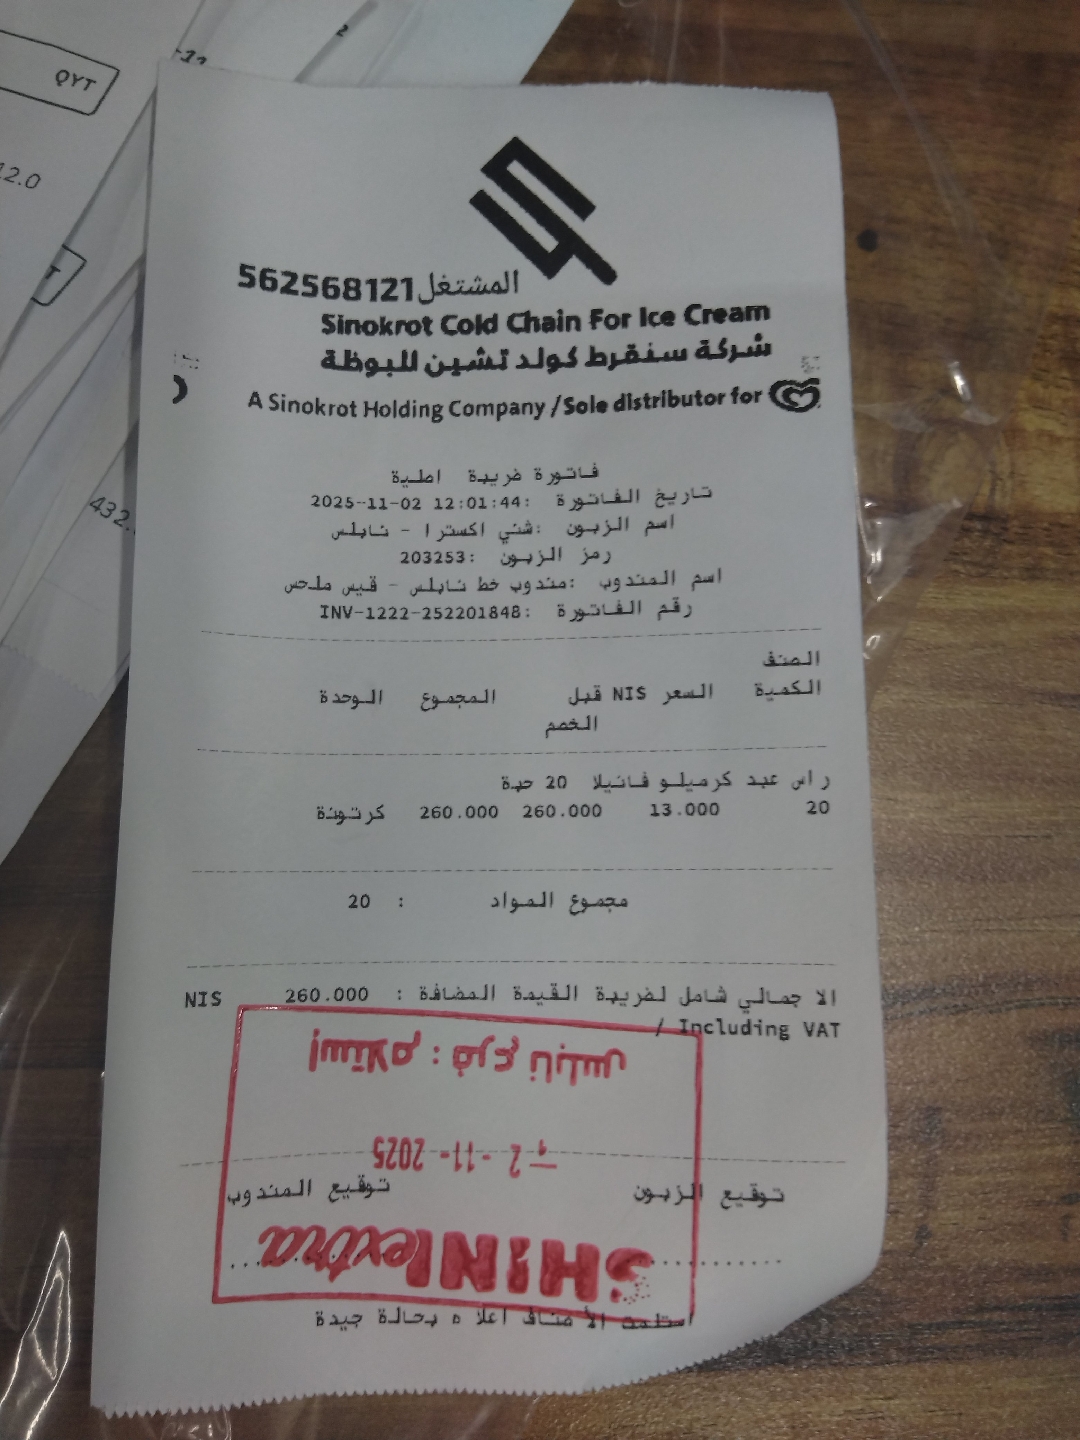 QYT
12.0
432.
562568121 المشتغل
Sinokrot Cold Chain For Ice Cream
شركة سنقرط كولد تشين للبوظة
A Sinokrot Holding Company /Sole distributor for
فاتورة ضريبة اصلية
تاريخ الفاتورة :2025-11-02 12:01:44
اسم الزبون :شني اكسترا - نابلس
رمز الزبون :203253
اسم المندوب :مندوب خط نابلس - قيس ملحس
رقم الفاتورة :INV-1222-252201848
الصنف
الكمية السعر NIS قبل المجموع الوحدة
الخصم
راس عبد كرميلو فانيلا 20 حبة
20 13.000 260.000 260.000 كرتونة
مجموع المواد : 20
الاجمالي شامل لضريبة القيمة المضافة : 260.000 NIS
/ Including VAT
استلام : فرع نابلس
2 -11- 2025
توقيع الزبون توقيع المندوب
SHINI extra
استلمت الأصناف اعلاه بحالة جيدة